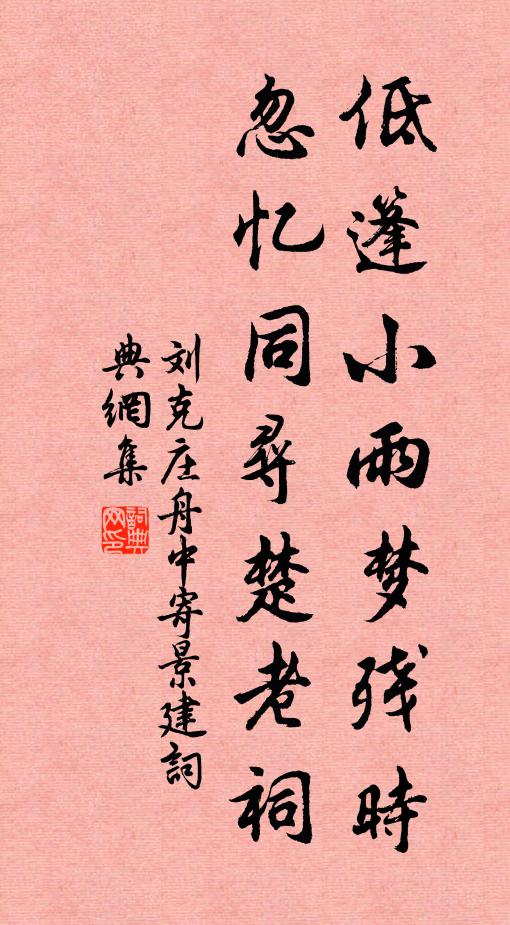 低篷小雨梦残時
忽忆同尋楚老祠
刘克庄舟中寄景建詞
典網集
詞典
网印